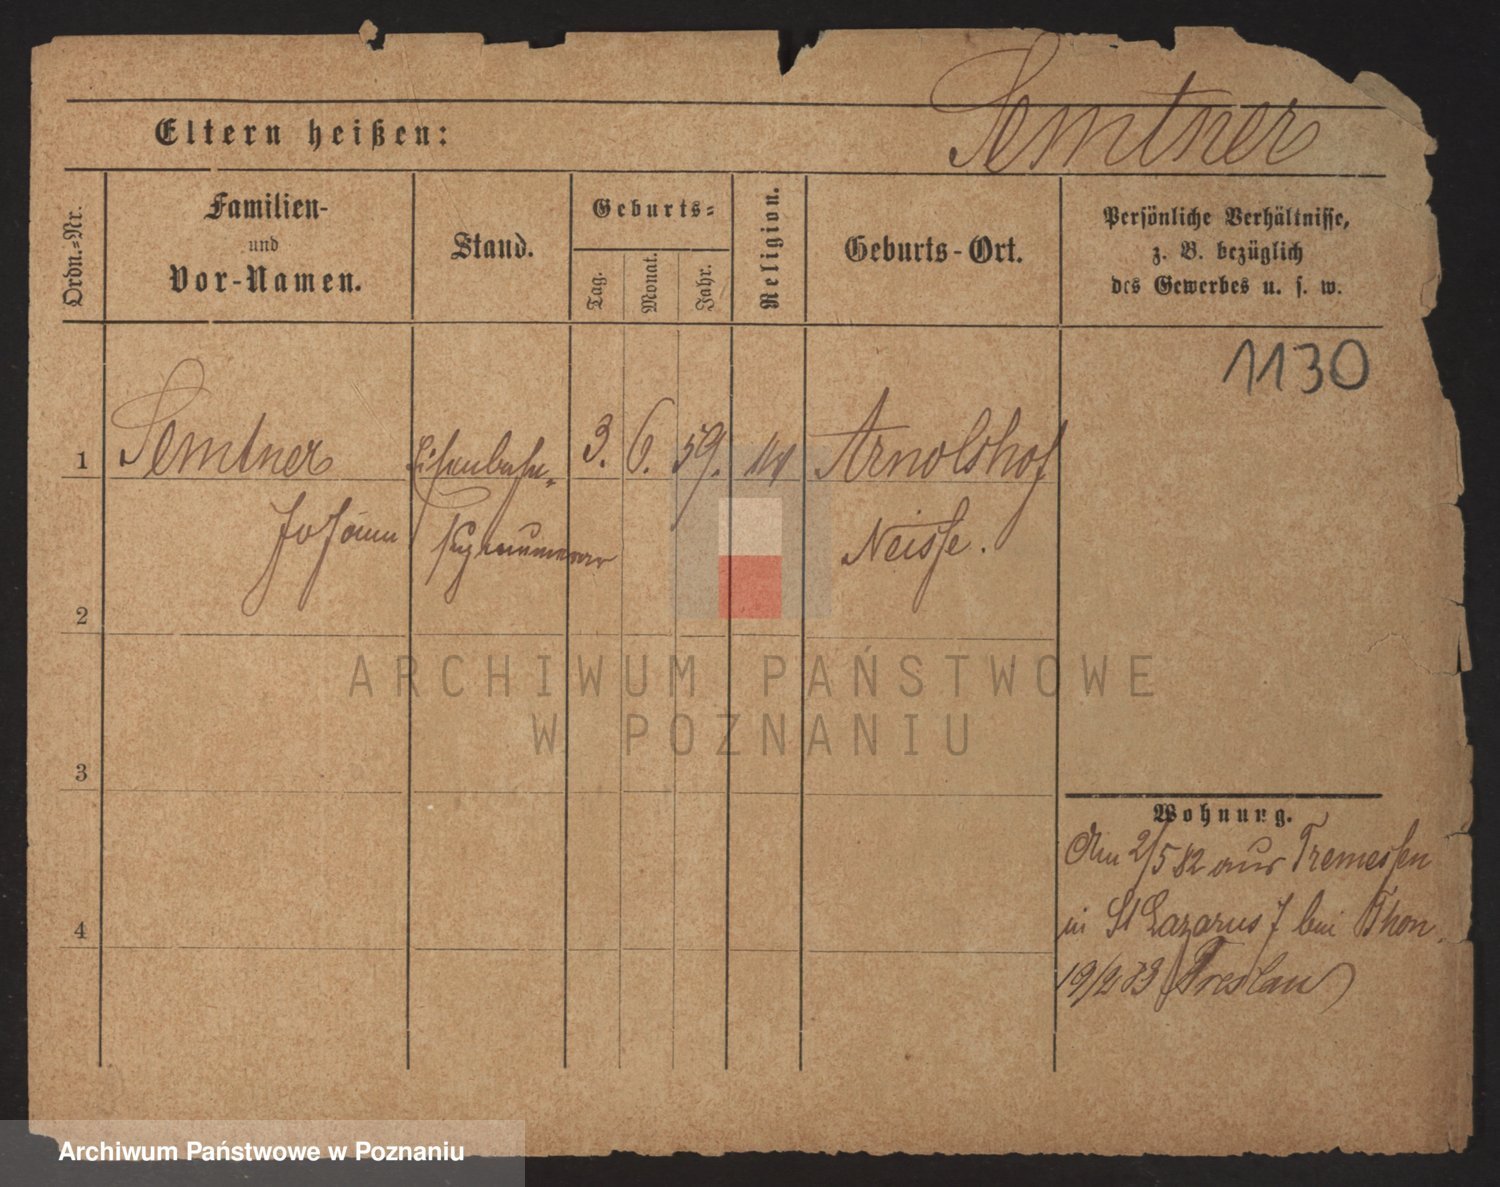 Semtner
Eltern heißen:
Ordn.-Nr.
Familien-
und
Vor-Namen.
Stand.
Geburts-
Tag.
Monat.
Jahr.
Religion.
Geburts-Ort.
Persönliche Verhältnisse,
z. B. bezüglich
des Gewerbes u. s. w.
1130
1 Semtner Eisenbahn- 3. 6. 59. Arnoldshof
Johann Neisse.
2
3
4
Wohnung.
Am 2/5 82 aus Tremessen
in St Lazarus 7 bei Thon.
19/2 83 Breslau
ARCHIWUM PAŃSTWOWE
W POZNANIU
Archiwum Państwowe w Poznaniu